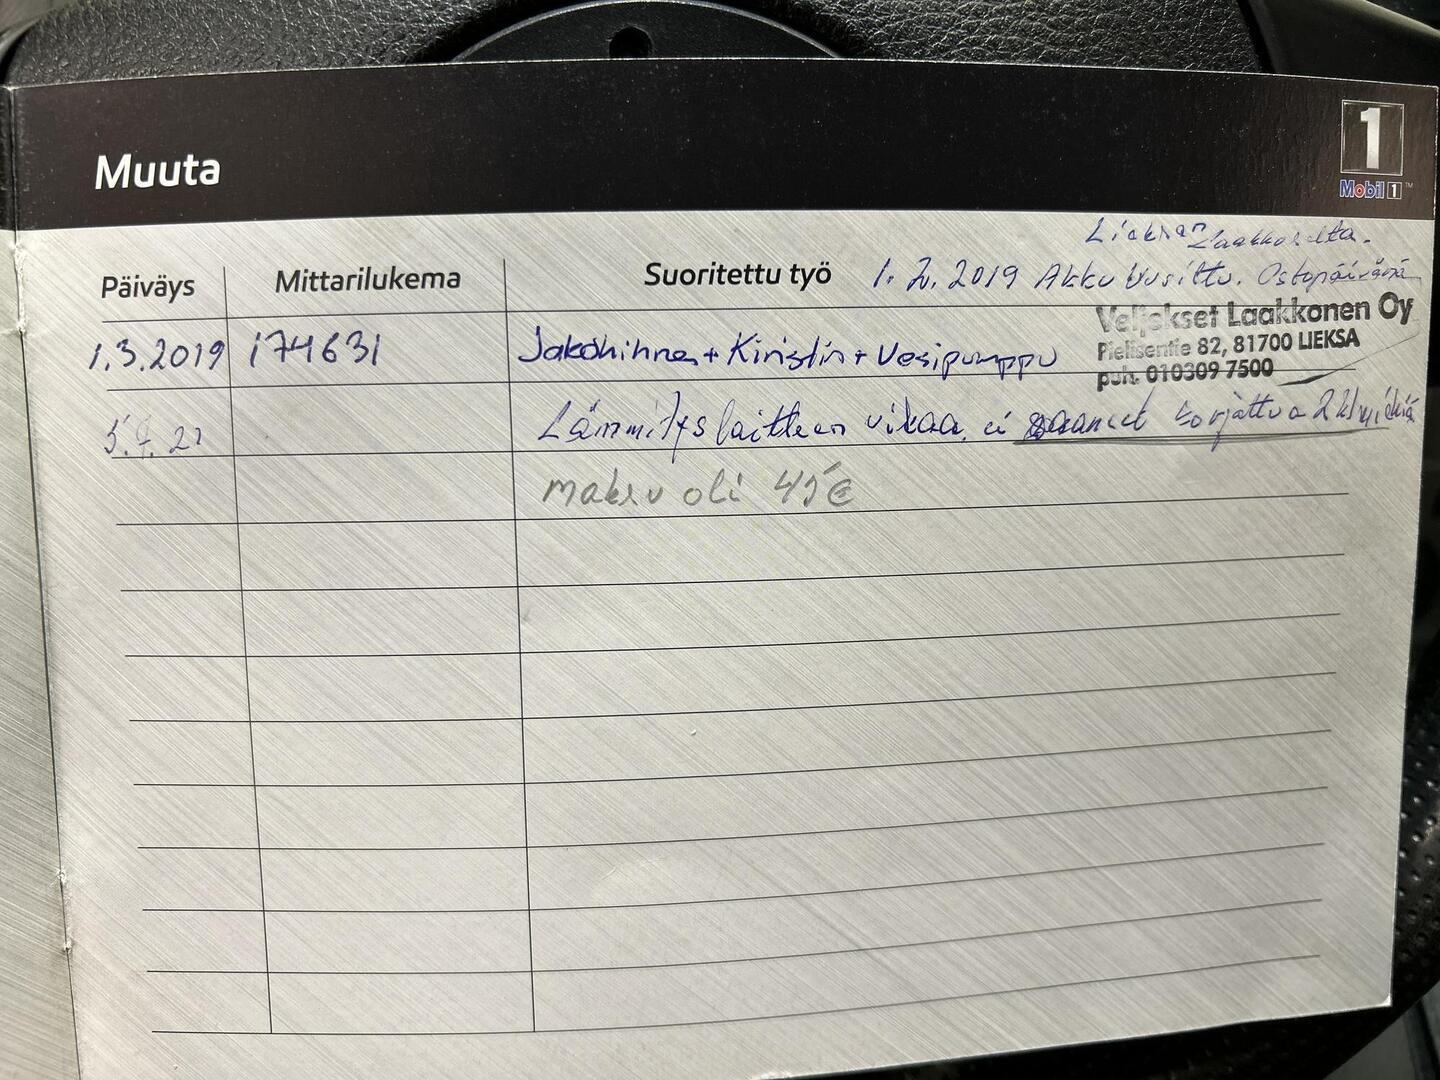 Muuta
1
Mobil 1™
Lieksan Laakkoselta.
Päiväys Mittarilukema Suoritettu työ 1.2.2019 Akku Uusittu. Ostopäivänä
Veljekset Laakkonen Oy
Pielisentie 82, 81700 LIEKSA
puh. 010309 7500
1.3.2019 174631 Jakohihna + Kiristin + Vesipumppu
Lämmityslaitteen vikaa, ei saaneet korjattua
maksu oli 45€